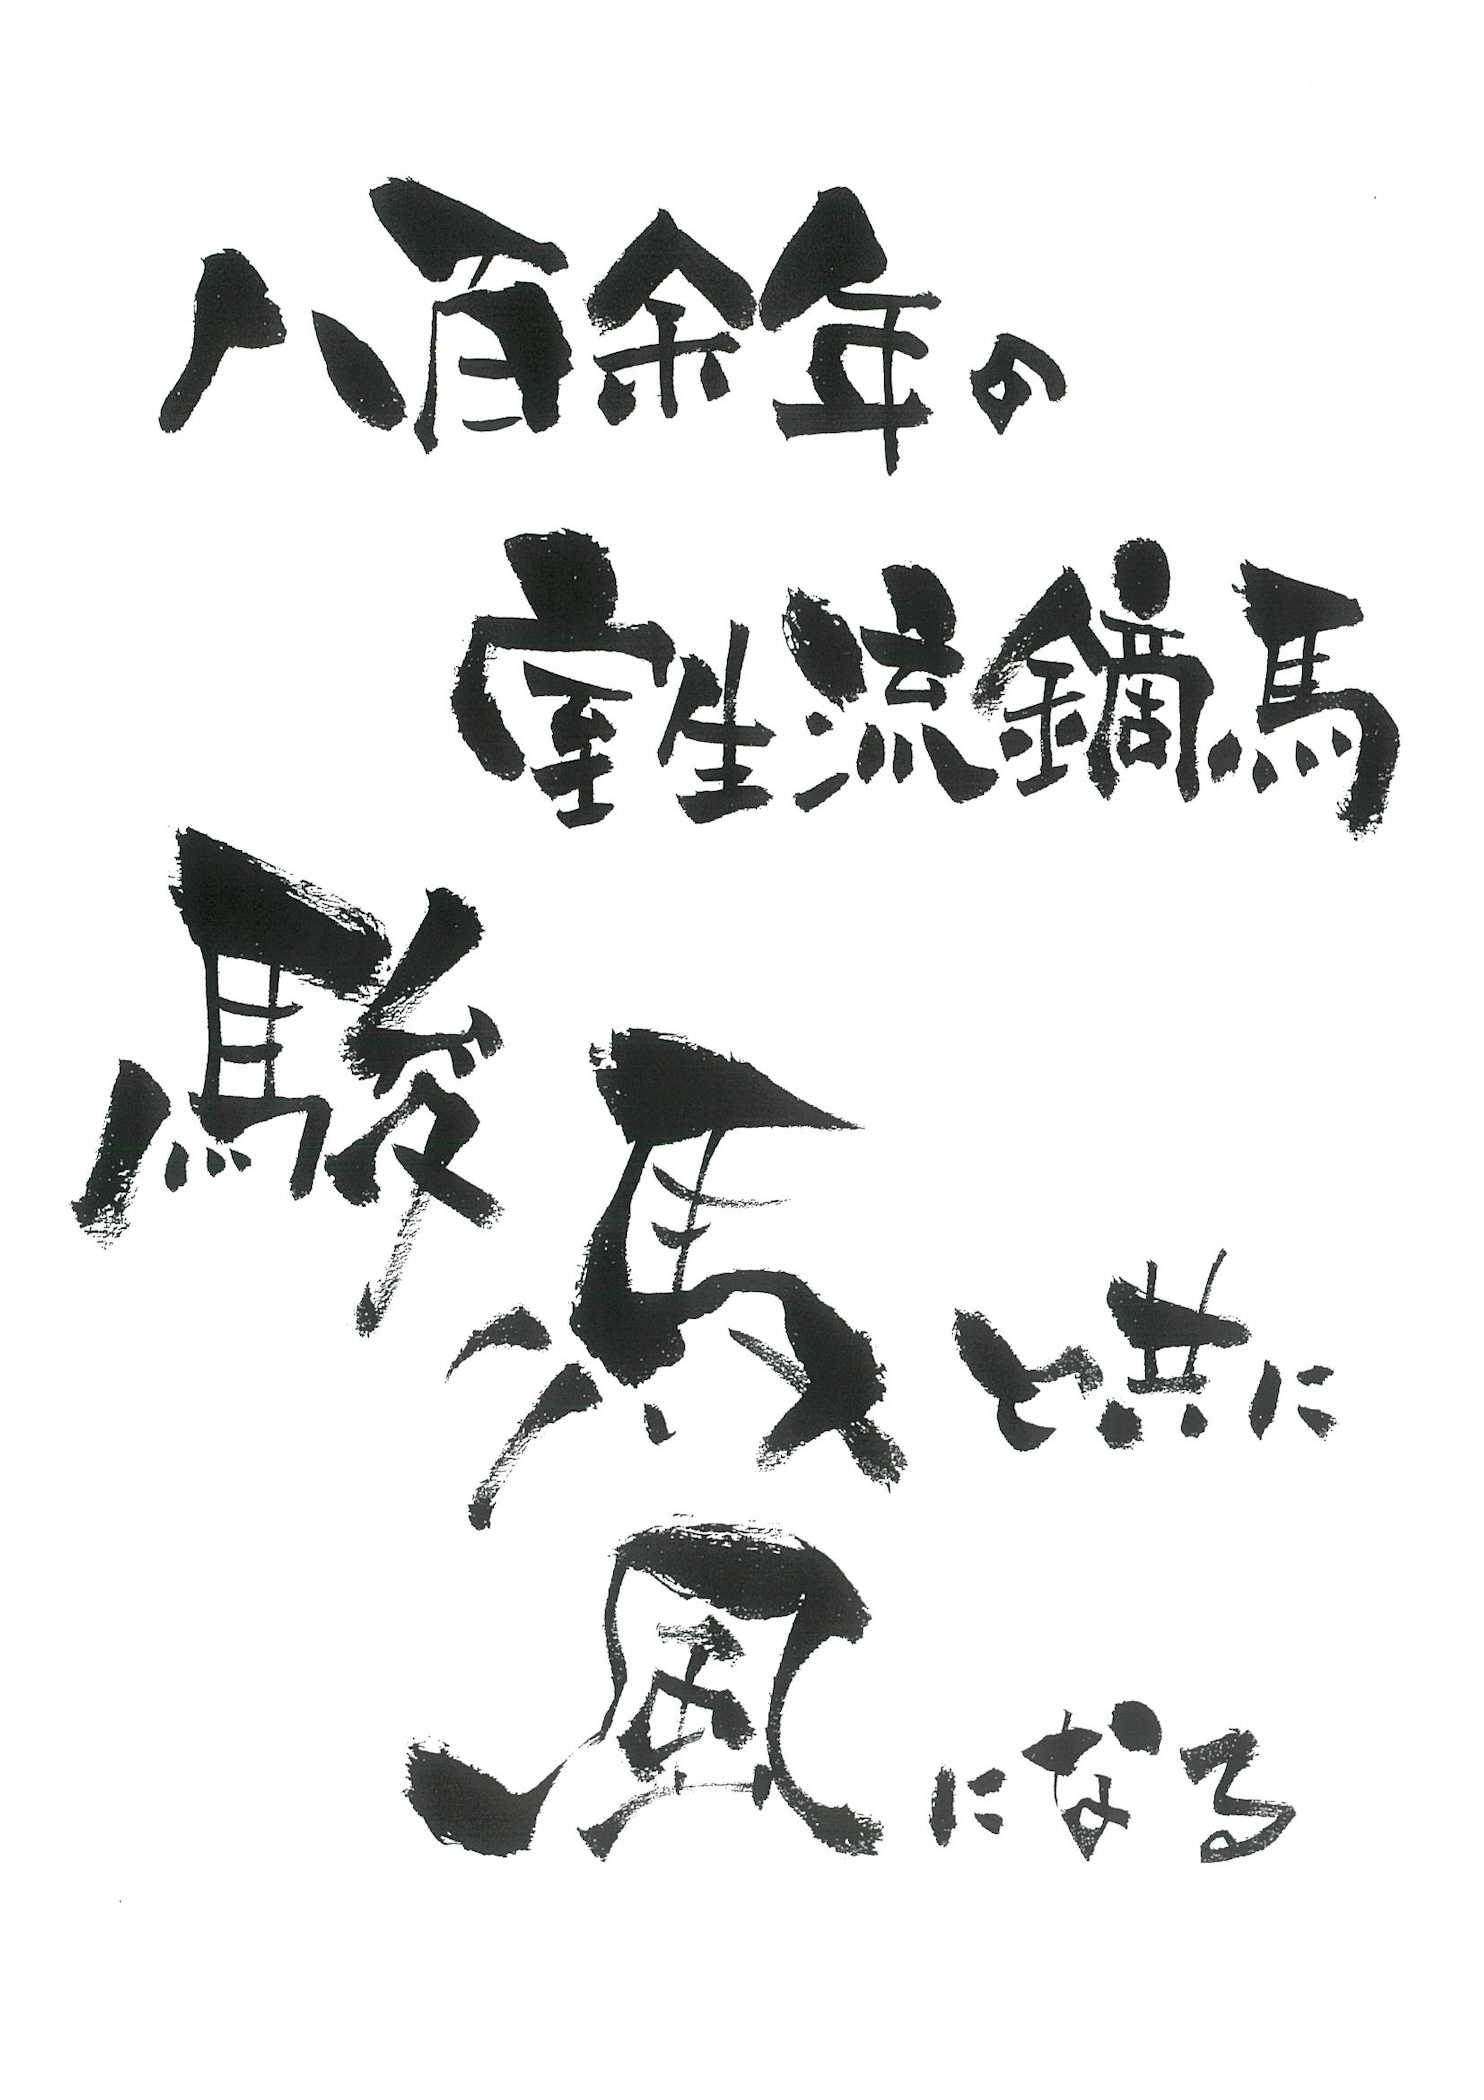 八百余年の
室生流鏑馬
駿馬と共に
風になる